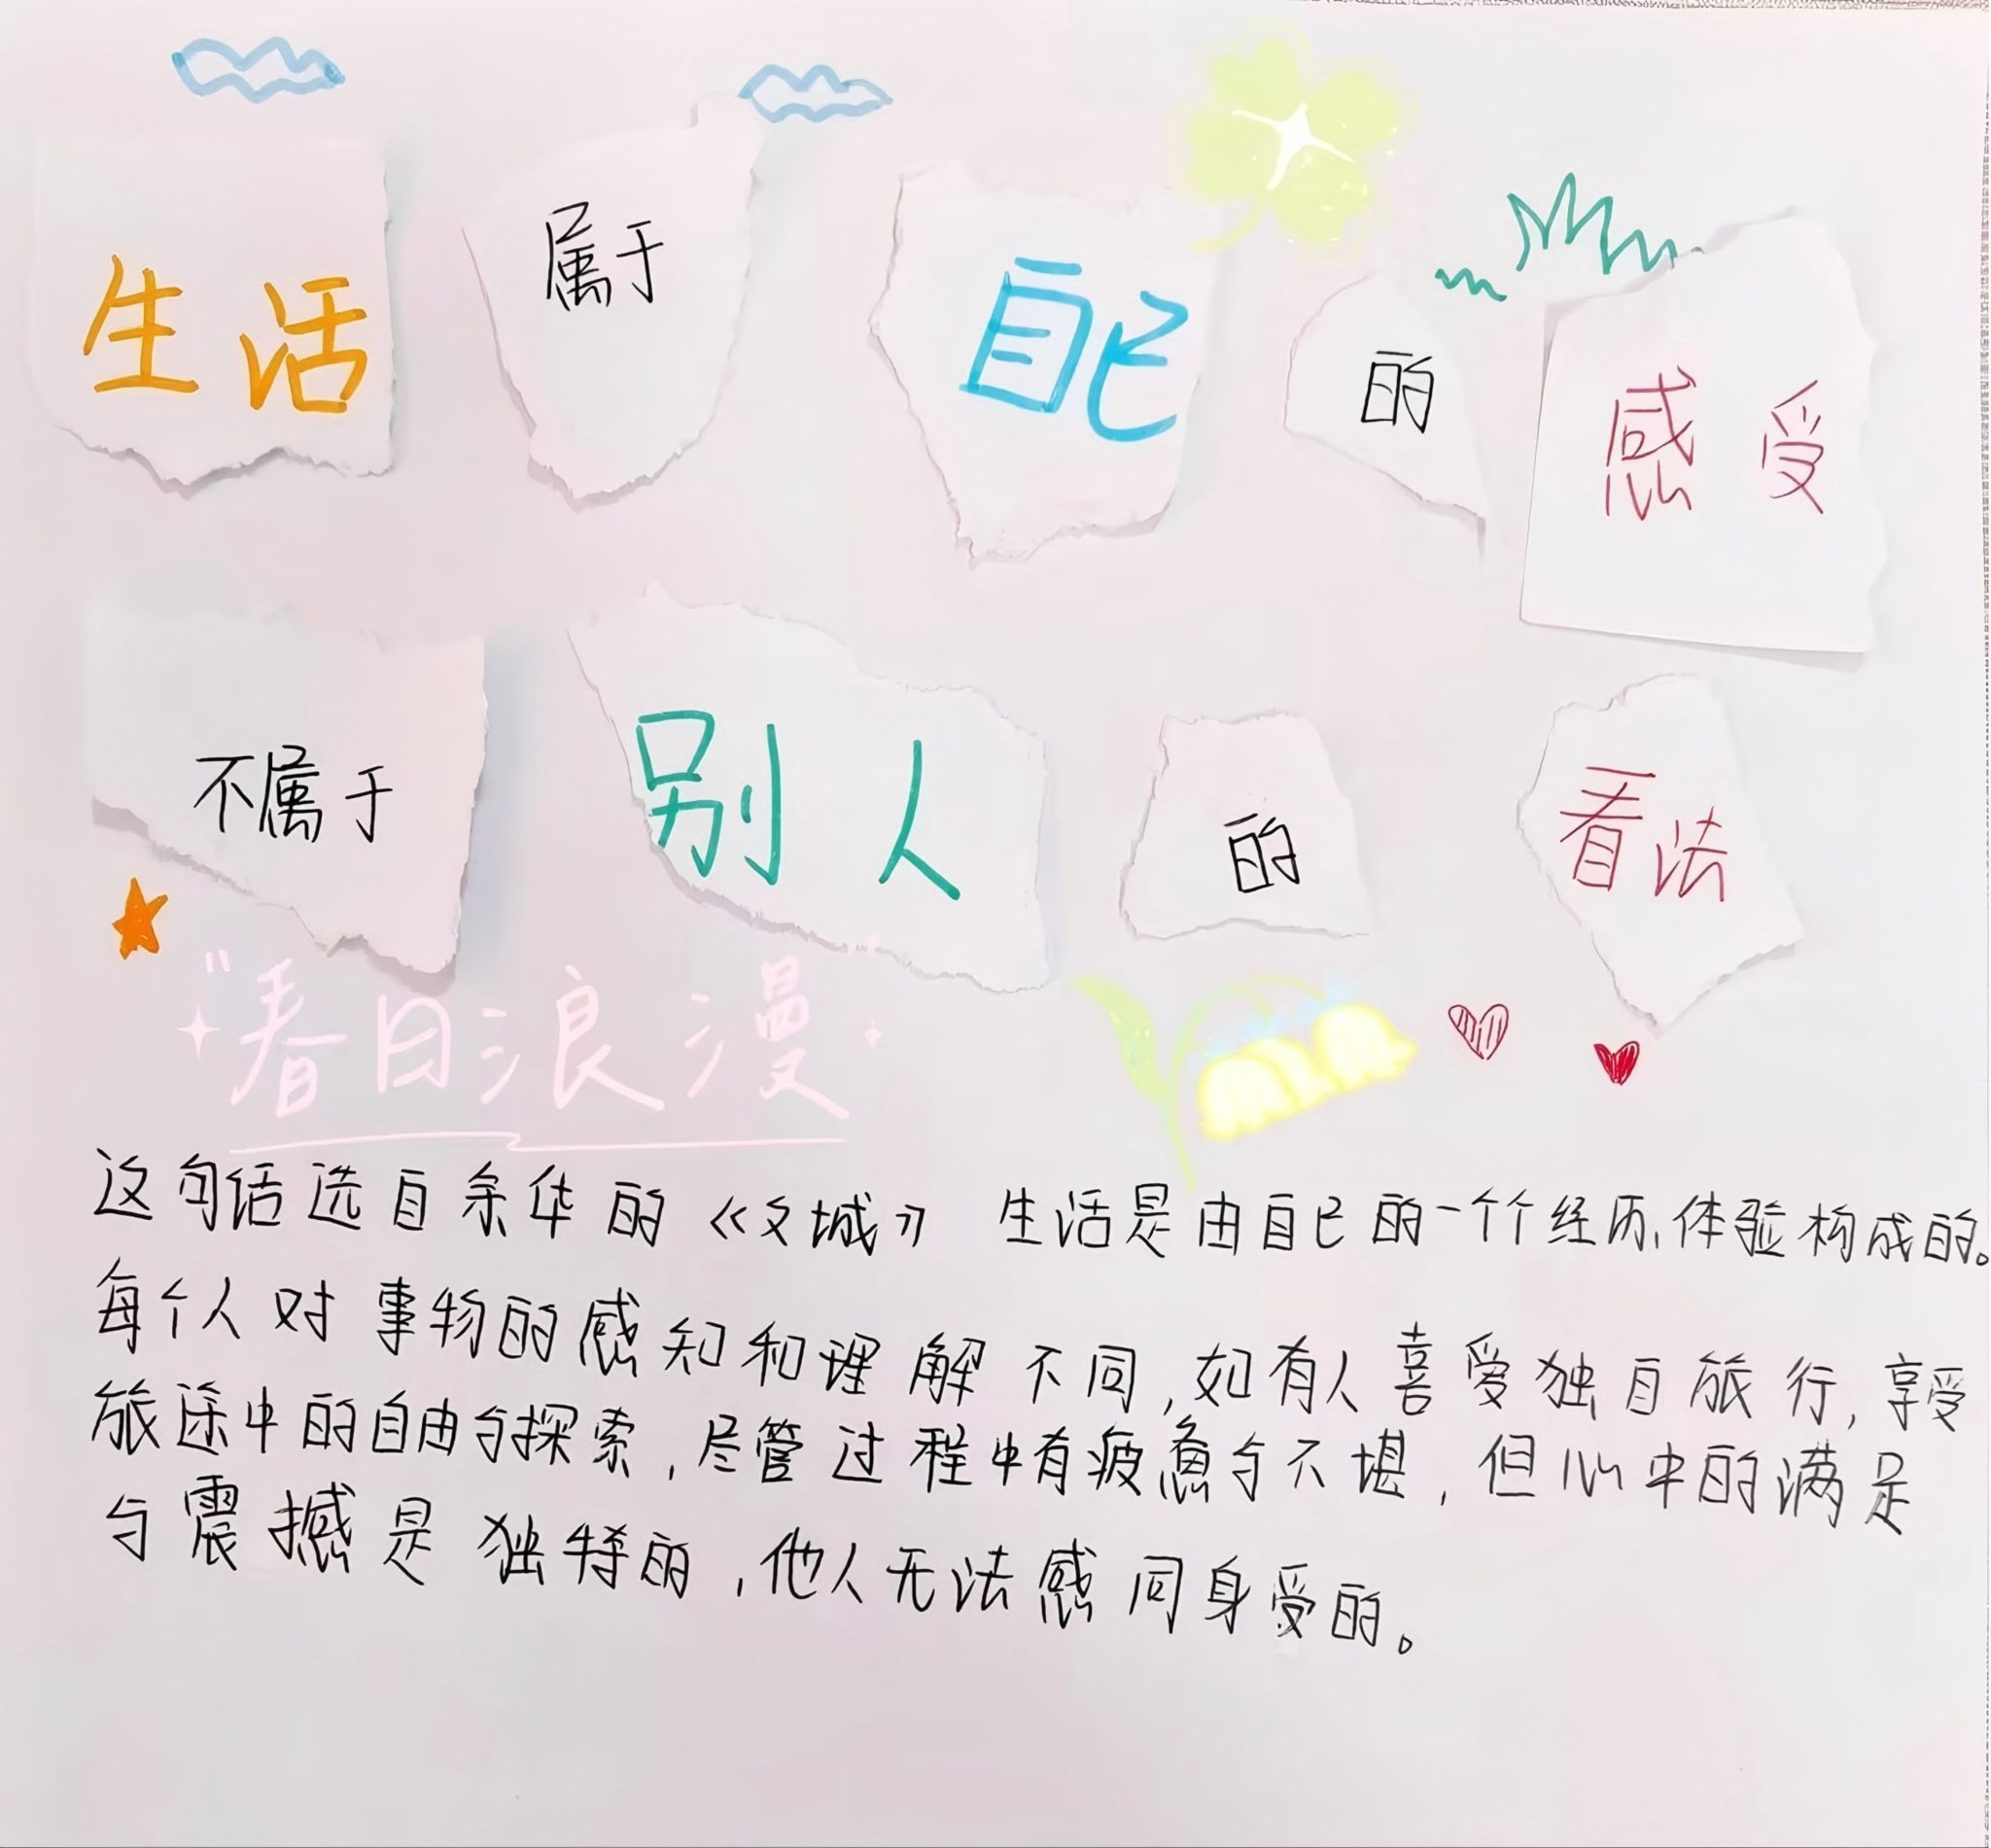 生活 属于 自己 的 感受
不属于 别人 的 看法
"春日浪漫
这句话选自余华的《文城》 生活是由自己的一个个经历、体验构成的。
每个人对事物的感知和理解不同,如有人喜爱独自旅行,享受
旅途中的自由与探索,尽管过程中有疲惫与不堪,但心中的满足
与震撼是独特的,他人无法感同身受的。